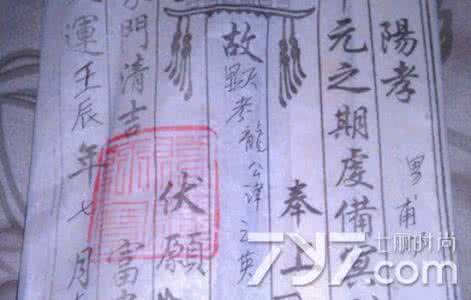 陽孝 男甫
元之期虔備冥
奉上
故顯考龍公諱之英
伏願
門清吉 富
運壬辰年七月
7y7七丽时尚